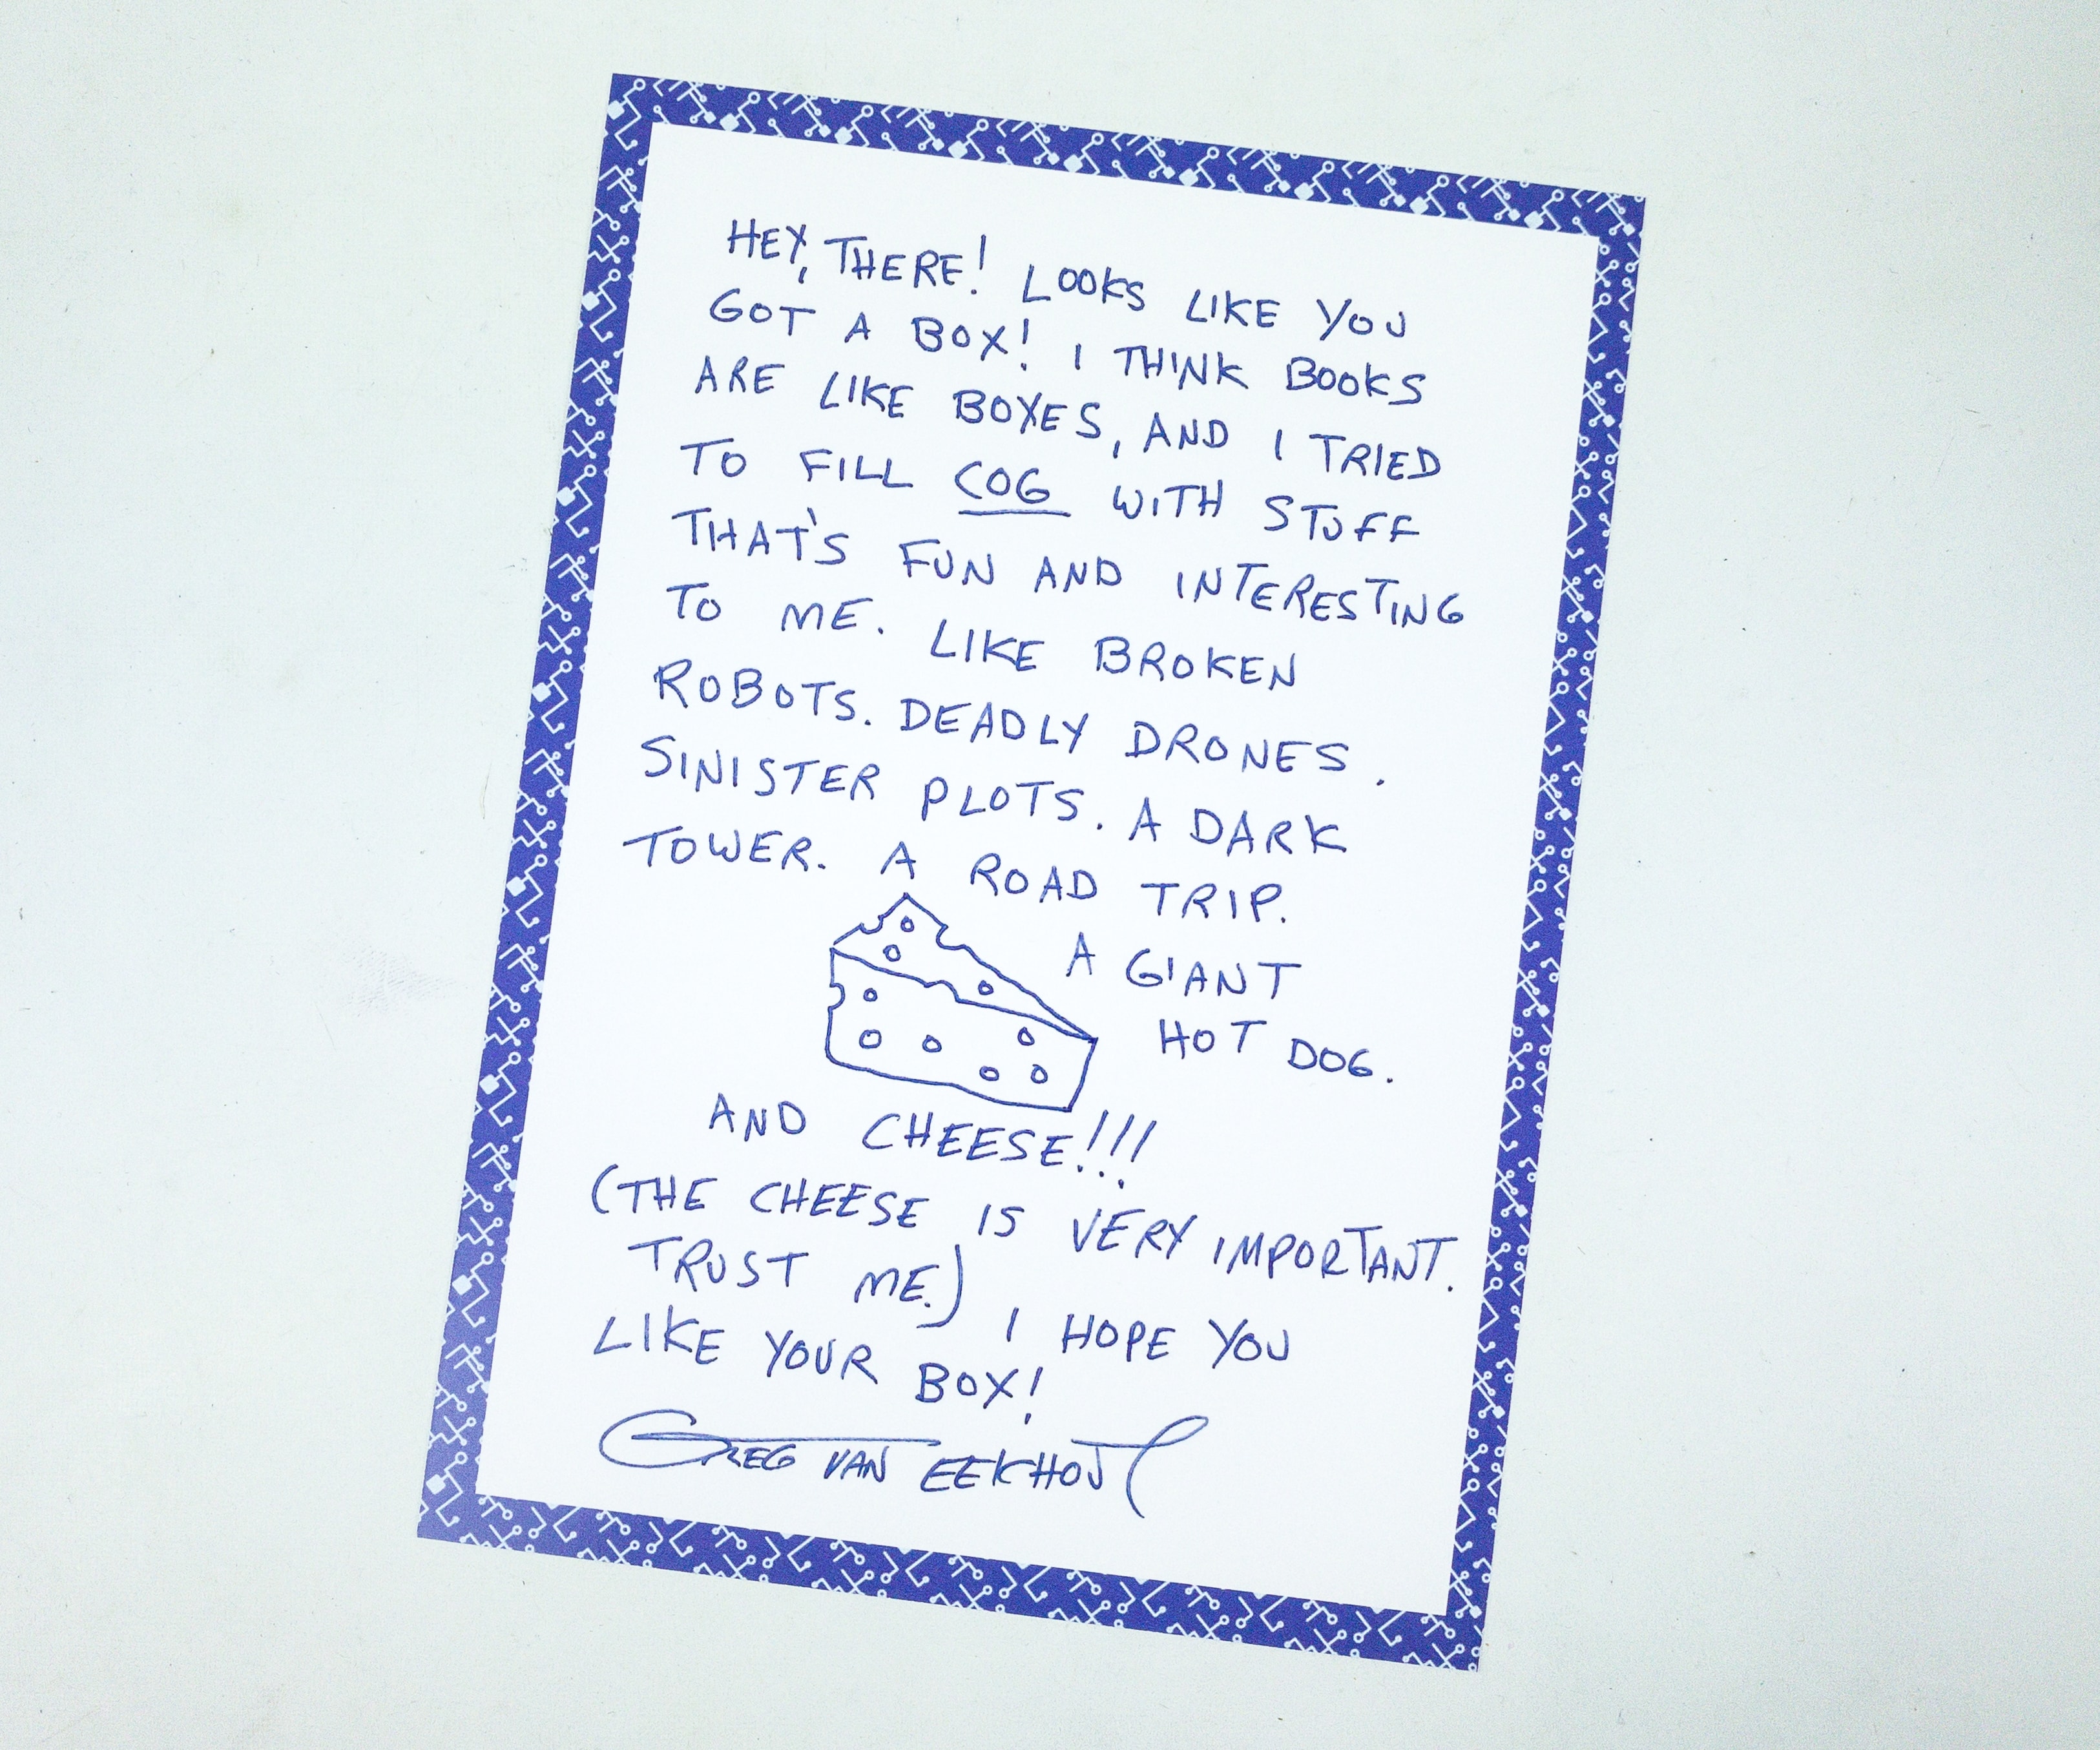 HEY, THERE! LOOKS LIKE YOU
GOT A BOX! I THINK BOOKS
ARE LIKE BOXES, AND I TRIED
TO FILL COG WITH STUFF
THAT'S FUN AND INTERESTING
TO ME. LIKE BROKEN
ROBOTS. DEADLY DRONES.
SINISTER PLOTS. A DARK
TOWER. A ROAD TRIP.
A GIANT
HOT DOG.
AND CHEESE!!!
(THE CHEESE IS VERY IMPORTANT.
TRUST ME.) I HOPE YOU
LIKE YOUR BOX!
GREG VAN EEKHOUT